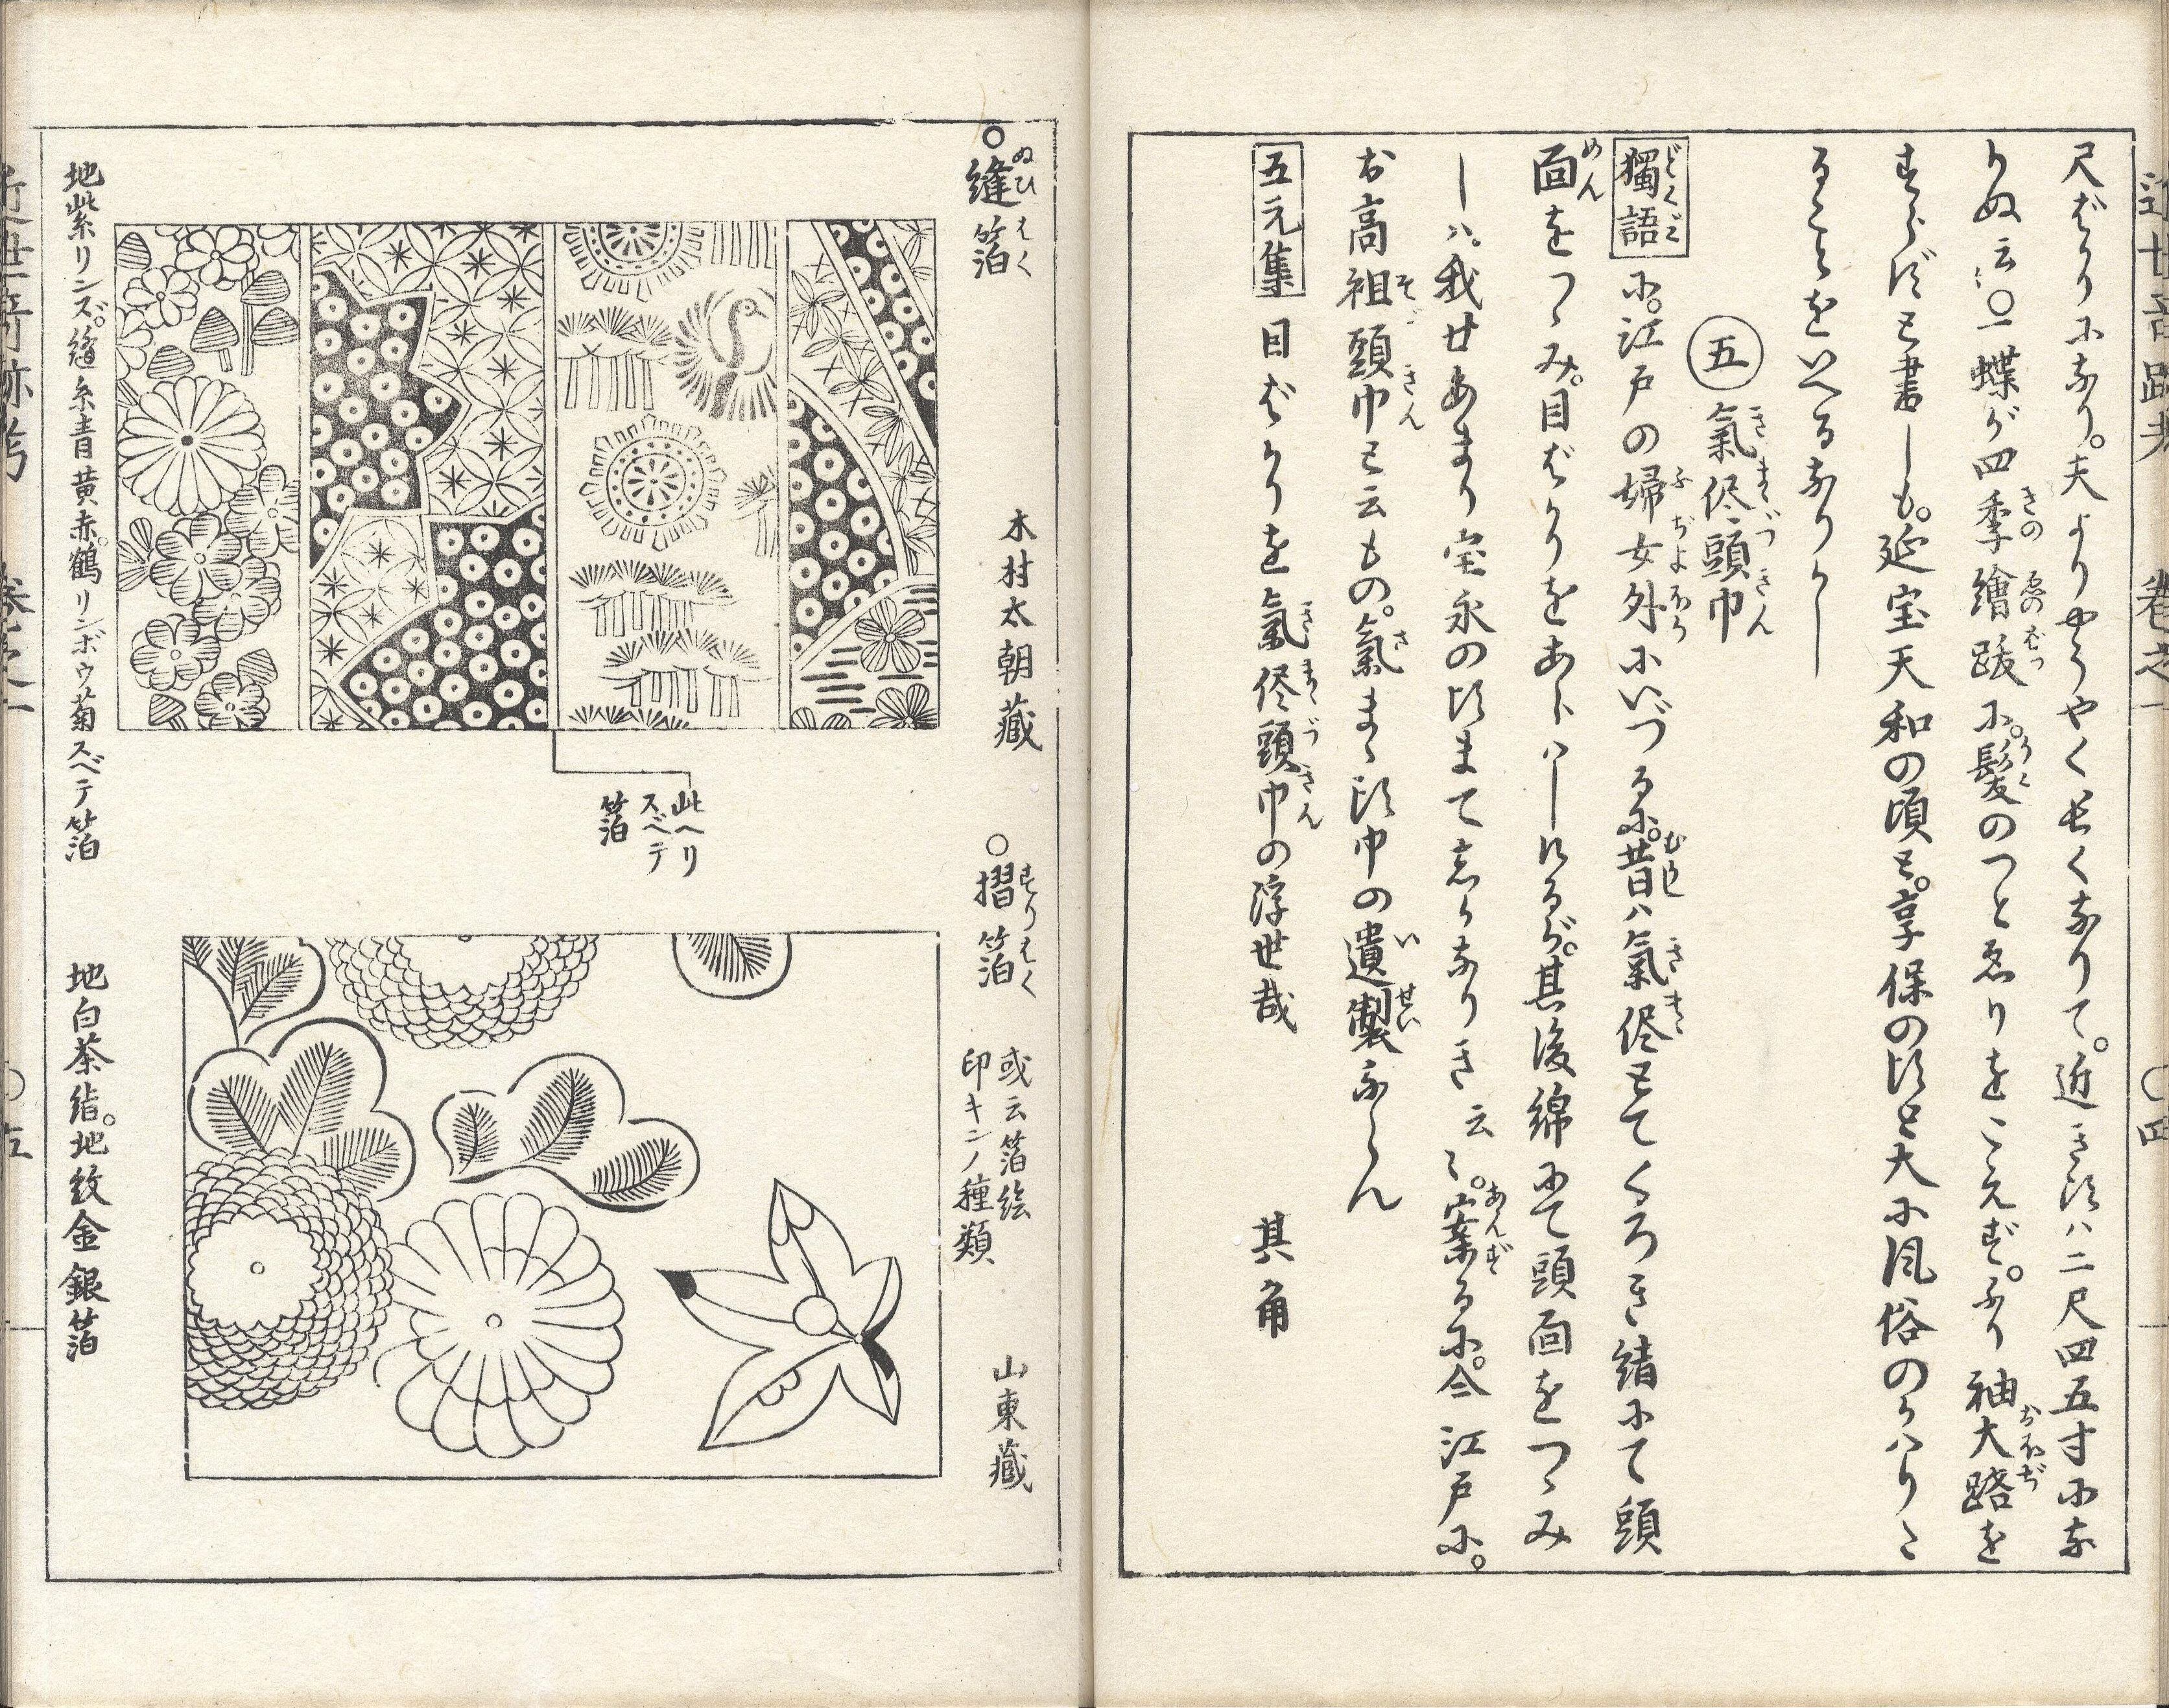 尺ばかりになり。夫よりやうやく長くなりて。近き頃ハ二尺四五寸にな
りぬ云〻〇一蝶が四季繪跋に。髪のつとゑりをこえず。ふり袖大路を
すらずと書しも。延宝天和の頃と。享保の頃と大に風俗のかハりた
ることをいへるなりけし
五 氣侭頭巾
獨語に。江戸の婦女外にいづるに。昔ハ氣侭とてくろき絹にて頭
面をつゝみ。目ばかりをあらハしけるが。其後綿にて頭面をつゝみ
しハ。我廿あまり宝永の頃まて志かなりき云〻。案るに。今江戸に。
お高祖頭巾と云もの。氣まゝ頭巾の遺製ならん
五元集 目ばかりを氣侭頭巾の浮世哉 其角
〇縫箔 木村太朝藏
此ヘリ
スベテ
箔
地紫リンズ。縫糸青黄赤。鶴リンボウ菊スベテ箔
〇摺箔 或云箔絵
印キンノ種類 山東藏
地白茶絹。地紋金銀箔